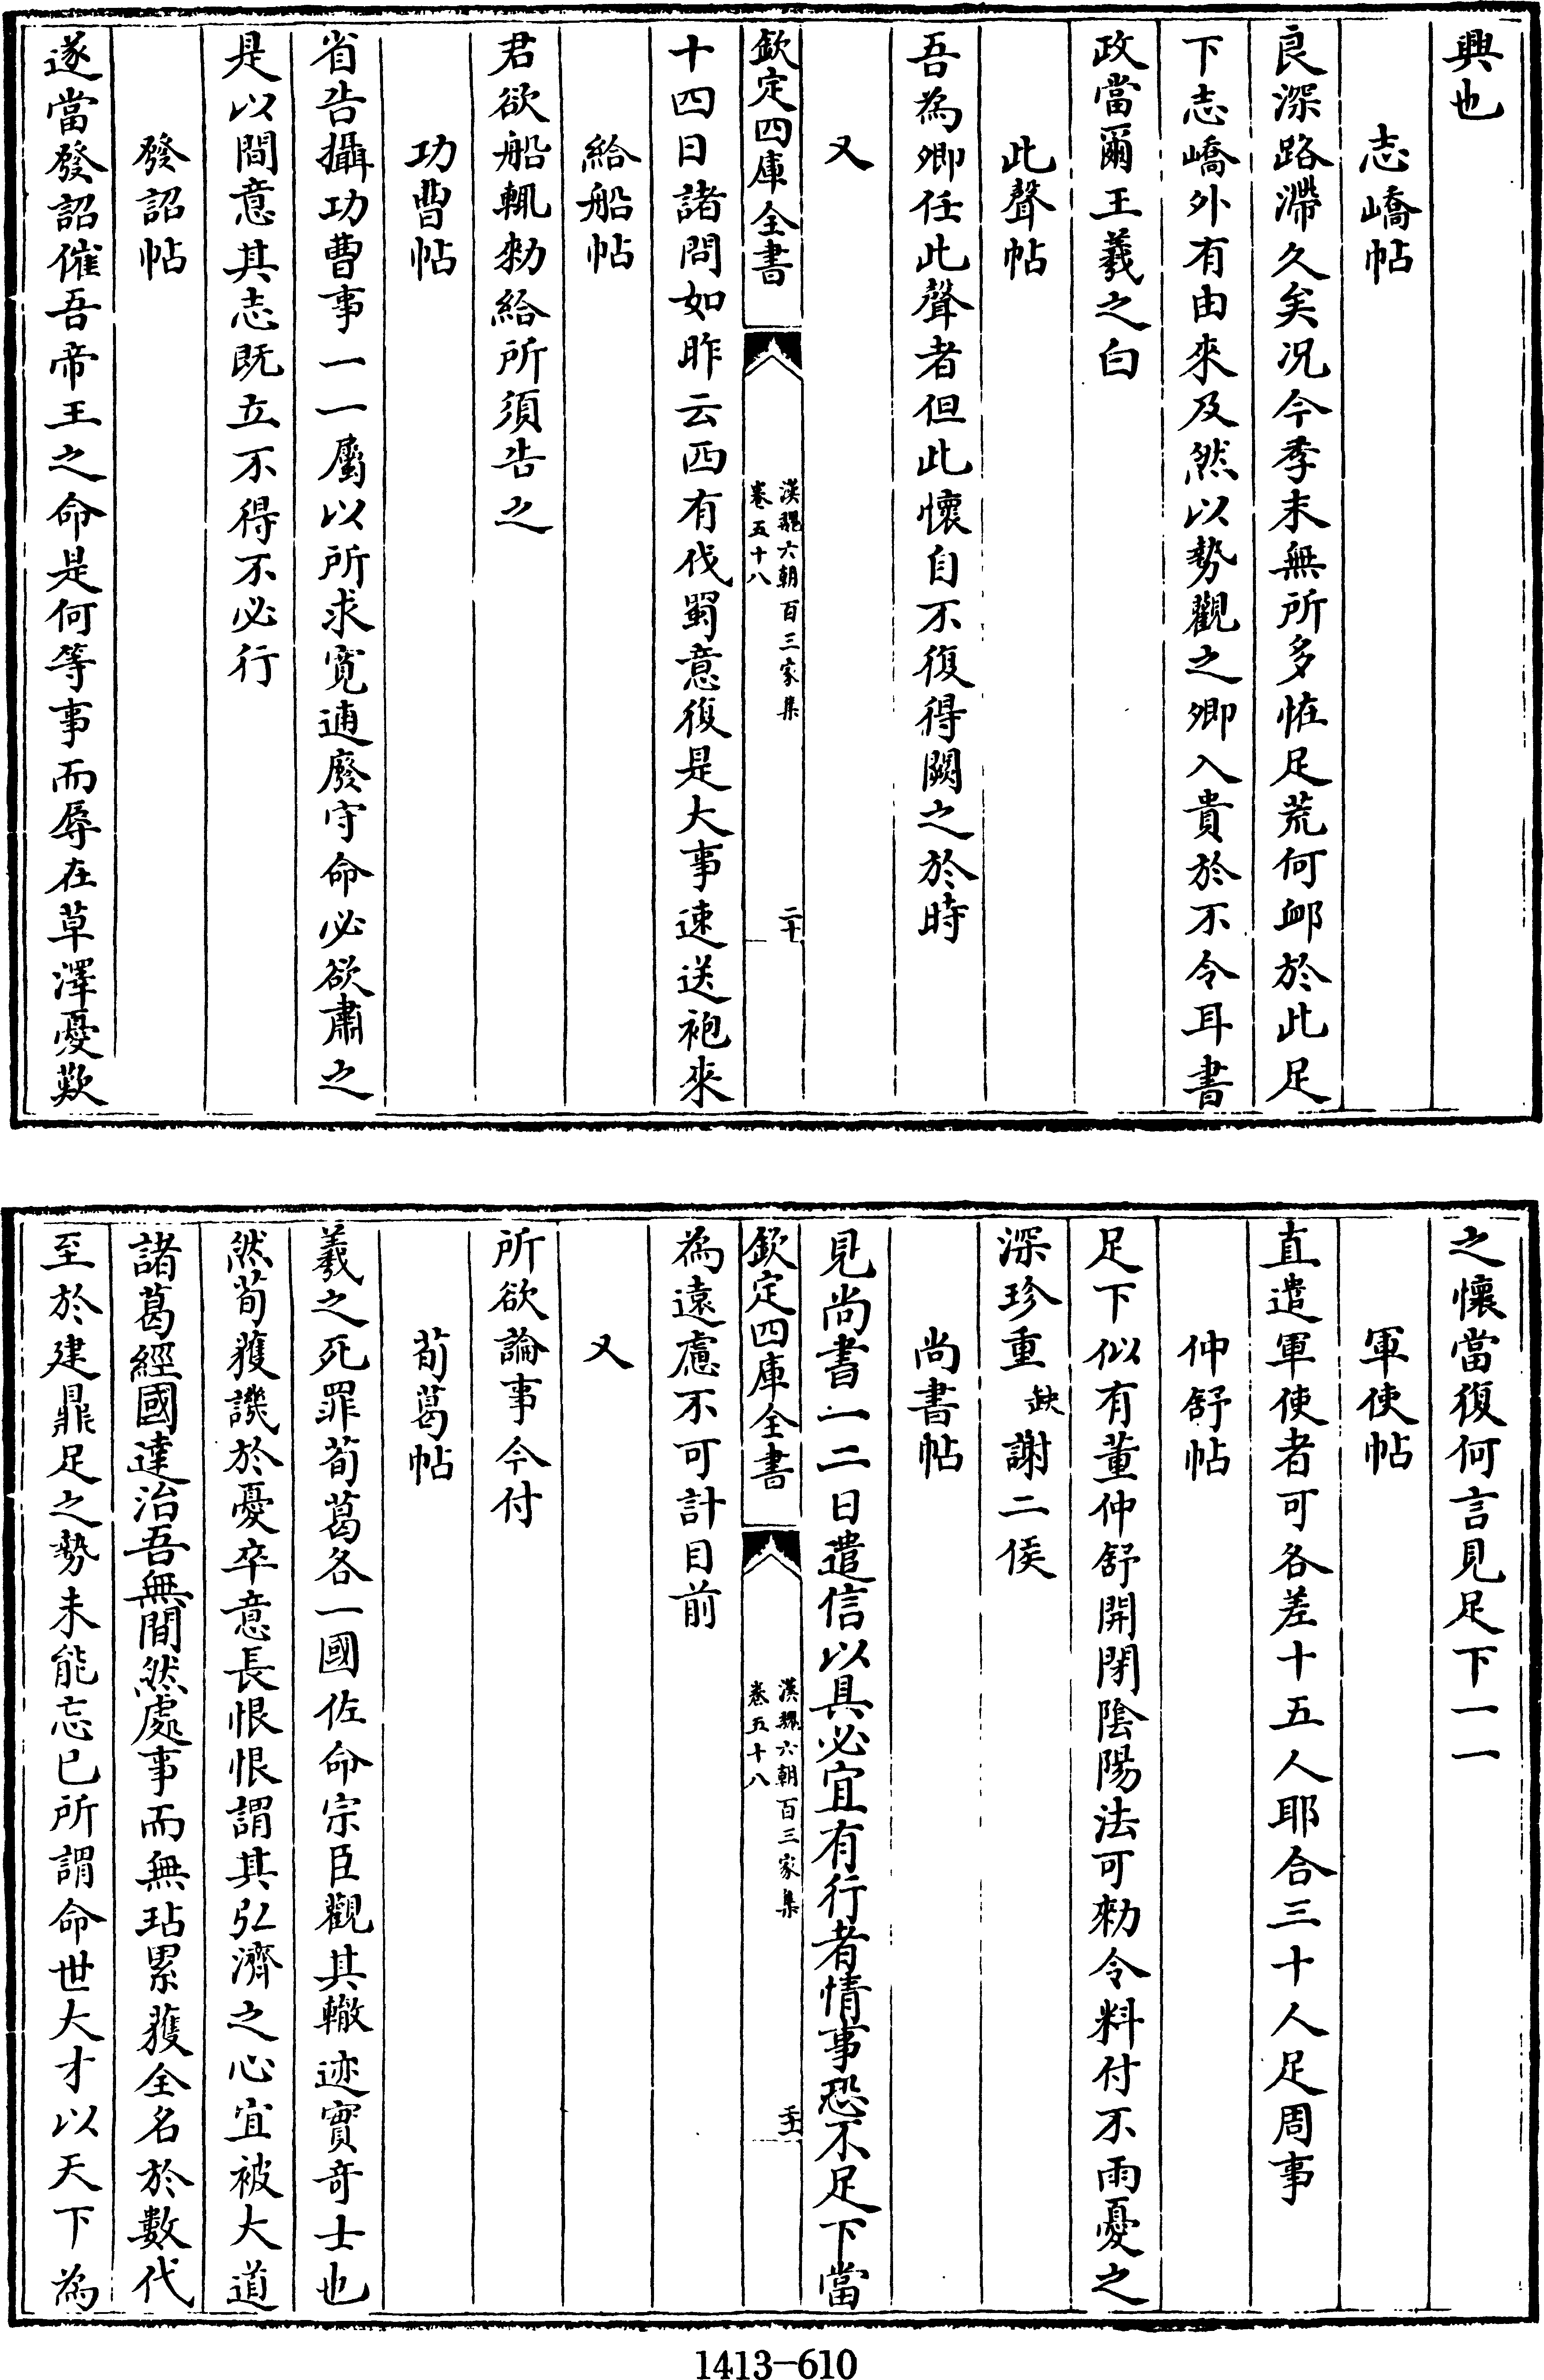 興也
志嶠帖
良深路滯久矣况今季末無所多恠足荒何䘏於此足
下志嶠外有由來及然以勢觀之卿入貴於不令耳書
政當爾王羲之白
此聲帖
吾為卿任此聲者但此懷自不復得闕之於時
又
欽定四庫全書
漢魏六朝百三家集
卷五十八
二十
十四日諸問如昨云西有伐蜀意復是大事速送袍來
給船帖
君欲船輒勑給所須告之
功曹帖
省告攝功曹事一一屬以所求寛逋廢守命必欲肅之
是以間意其志既立不得不必行
發詔帖
遂當發詔催吾帝王之命是何等事而辱在草澤憂歎
之懷當復何言見足下一一
軍使帖
直遣軍使者可各差十五人耶合三十人足周事
仲舒帖
足下似有董仲舒開閉陰陽法可勑令料付不雨憂之
深珍重缺謝二侯
尚書帖
見尚書一二日遣信以具必宜有行者情事恐不足下當
欽定四庫全書
漢魏六朝百三家集
卷五十八
二十一
為遠慮不可計目前
又
所欲論事今付
荀葛帖
羲之死罪荀葛各一國佐命宗臣觀其轍迹實竒士也
然荀獲譏於憂卒意長恨恨謂其弘濟之心宜被大道
諸葛經國達治吾無間然處事而無玷累獲全名於數代
至於建鼎足之勢未能忘已所謂命世大才以天下為
1413-610